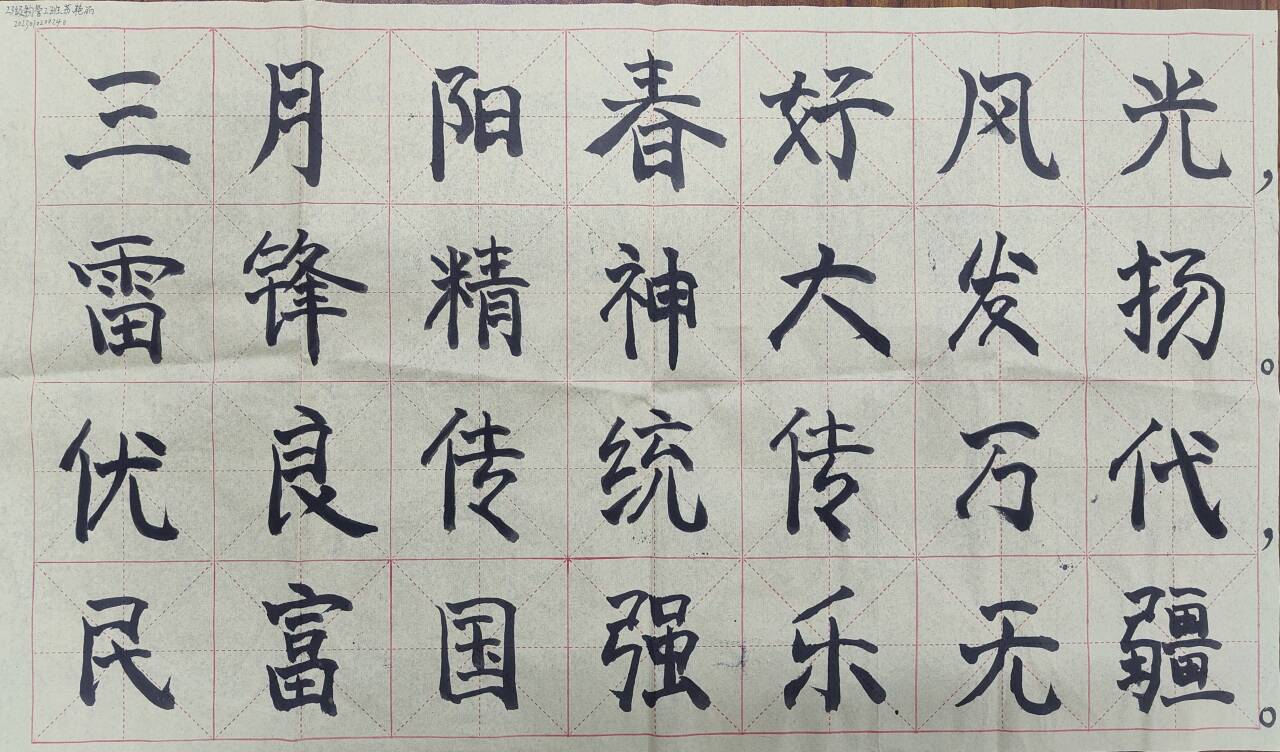 23级药营2班苏艳丙
三月阳春好风光，
雷锋精神大发扬。
优良传统传万代，
民富国强乐无疆。